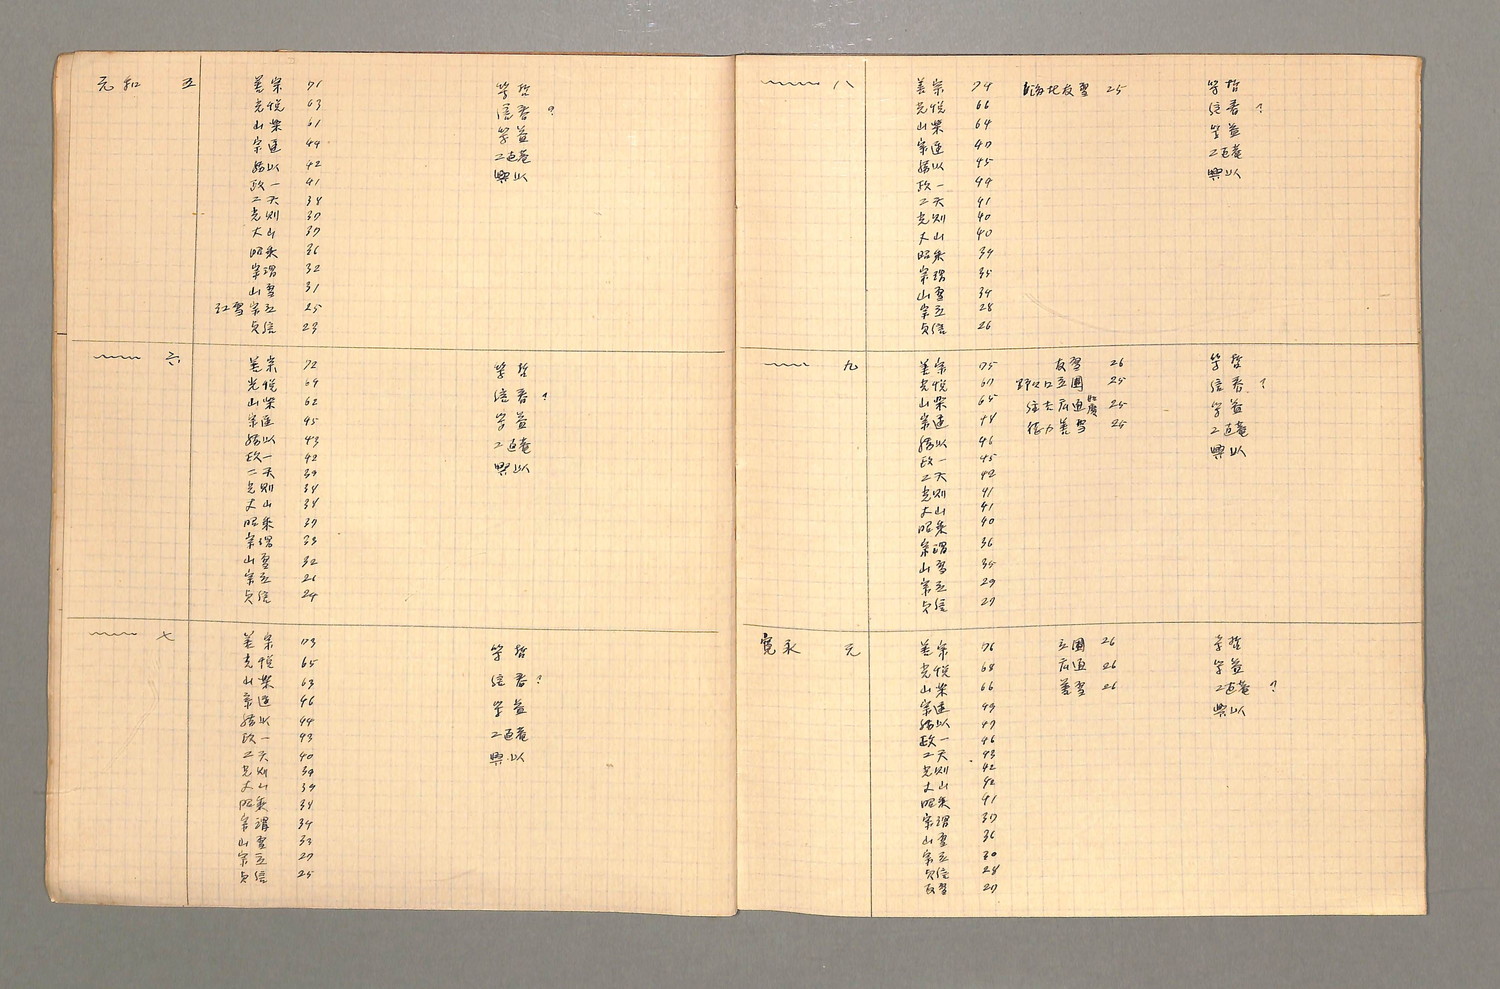 元和 五
善宗 71
光悦 63
山楽 61
宗達 44
勝以 42
政一 41
二天 38
光則 37
丈山 37
昭乗 36
宗謂 32
山雪 31
宗立 25
貞信 23
等哲
信春 ?
等益
二直菴
興以
〃 六
善宗 72
光悦 64
山楽 62
宗達 45
勝以 43
政一 42
二天 39
光則 38
丈山 38
昭乗 37
宗謂 33
山雪 32
宗立 26
貞信 24
等哲
信春 ?
等益
二直菴
興以
〃 七
善宗 73
光悦 65
山楽 63
宗達 46
勝以 44
政一 43
二天 40
光則 39
丈山 39
昭乗 38
宗謂 34
山雪 33
宗立 27
貞信 25
等哲
信春 ?
等益
二直菴
興以
〃 八
善宗 74
光悦 66
山楽 64
宗達 47
勝以 45
政一 44
二天 41
光則 40
丈山 40
昭乗 39
宗謂 35
山雪 34
宗立 28
貞信 26
海北友雪 25
等哲
信春 ?
等益
二直菴
興以
〃 九
善宗 75
光悦 67
山楽 65
宗達 48
勝以 46
政一 45
二天 42
光則 41
丈山 41
昭乗 40
宗謂 36
山雪 35
宗立 29
貞信 27
友雪 26
野々口立圃 25
住吉広通 如慶 25
徳力善雪 25
等哲
信春 ?
等益
二直菴
興以
寛永 元
善宗 76
光悦 68
山楽 66
宗達 49
勝以 47
政一 46
二天 43
光則 42
丈山 42
昭乗 41
宗謂 37
山雪 36
宗立 30
貞信 28
友雪 27
立圃 26
広通 26
善雪 26
等哲
等益
二直菴 ?
興以